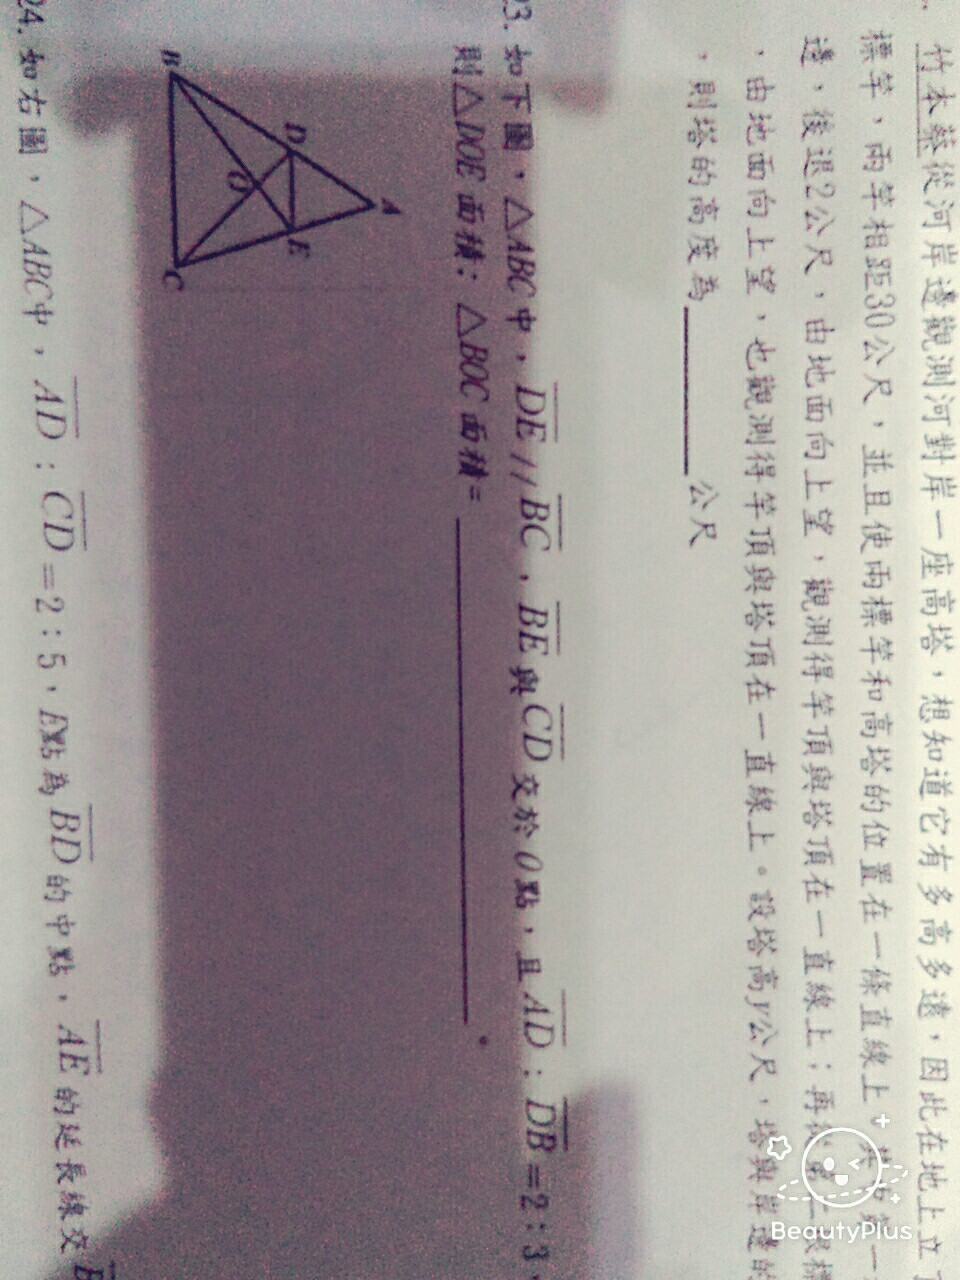 竹本蔡從河岸邊觀測河對岸一座高塔，想知道它有多高多遠，因此在地上立
標竿，兩竿相距30公尺，並且使兩標竿和高塔的位置在一條直線上
邊，後退2公尺，由地面向上望，觀測得竿頂與塔頂在一直線上；再從
，由地面向上望，也觀測得竿頂與塔頂在一直線上。設塔高y公尺，塔與岸邊的
，則塔的高度為______公尺
23. 如下圖，△ABC中，DE//BC，BE與CD交於O點，且AD：DB＝2：3，
則△DOE面積：△BOC面積＝______。
A
D
E
O
B
C
24. 如右圖，△ABC中，AD：CD＝2：5，E點為BD的中點，AE的延長線交B
BeautyPlus